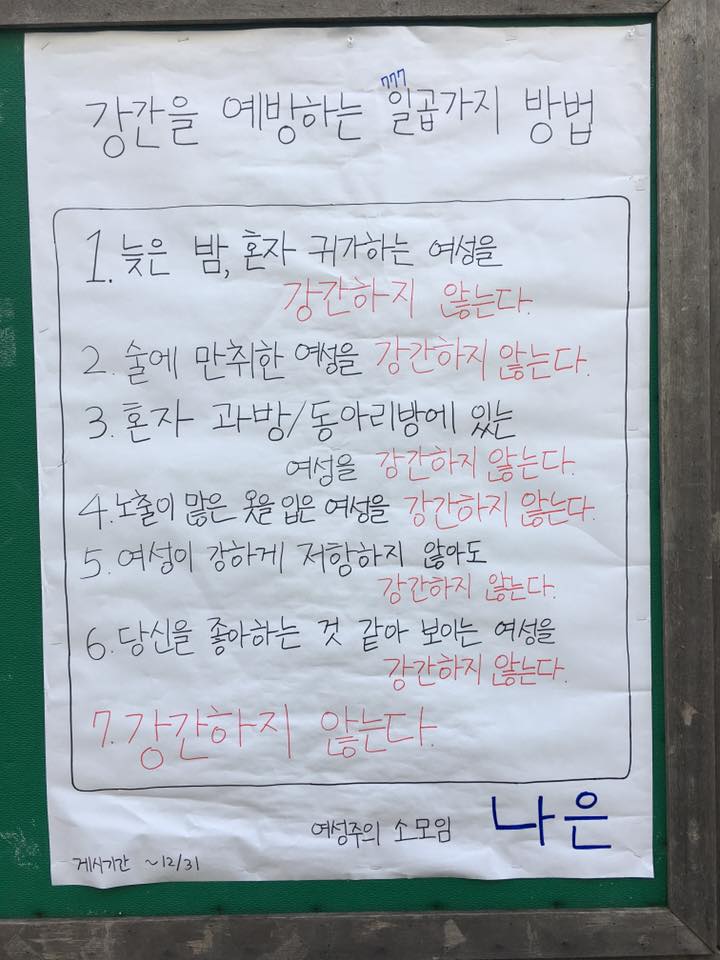 강간을 예방하는 일곱가지 방법
777
1. 늦은 밤, 혼자 귀가하는 여성을
강간하지 않는다.
2. 술에 만취한 여성을 강간하지 않는다.
3. 혼자 과방/동아리방에 있는
여성을 강간하지 않는다.
4. 노출이 많은 옷을 입은 여성을 강간하지 않는다.
5. 여성이 강하게 저항하지 않아도
강간하지 않는다.
6. 당신을 좋아하는 것 같아 보이는 여성을
강간하지 않는다.
7. 강간하지 않는다.
여성주의 소모임 나은
게시기간 ~12/31